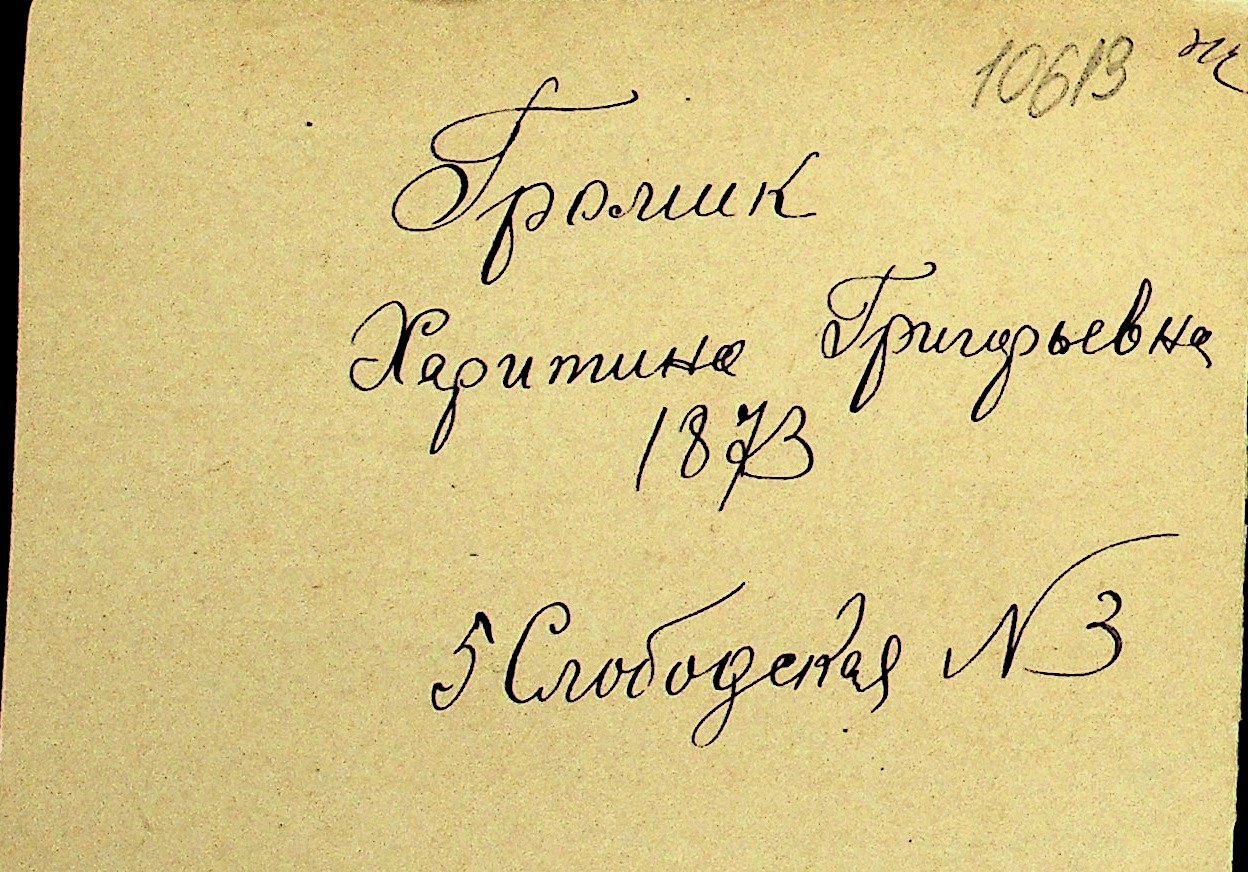 10613
Громик
Харитина Григорьевна
1873
5 Слободская N 3